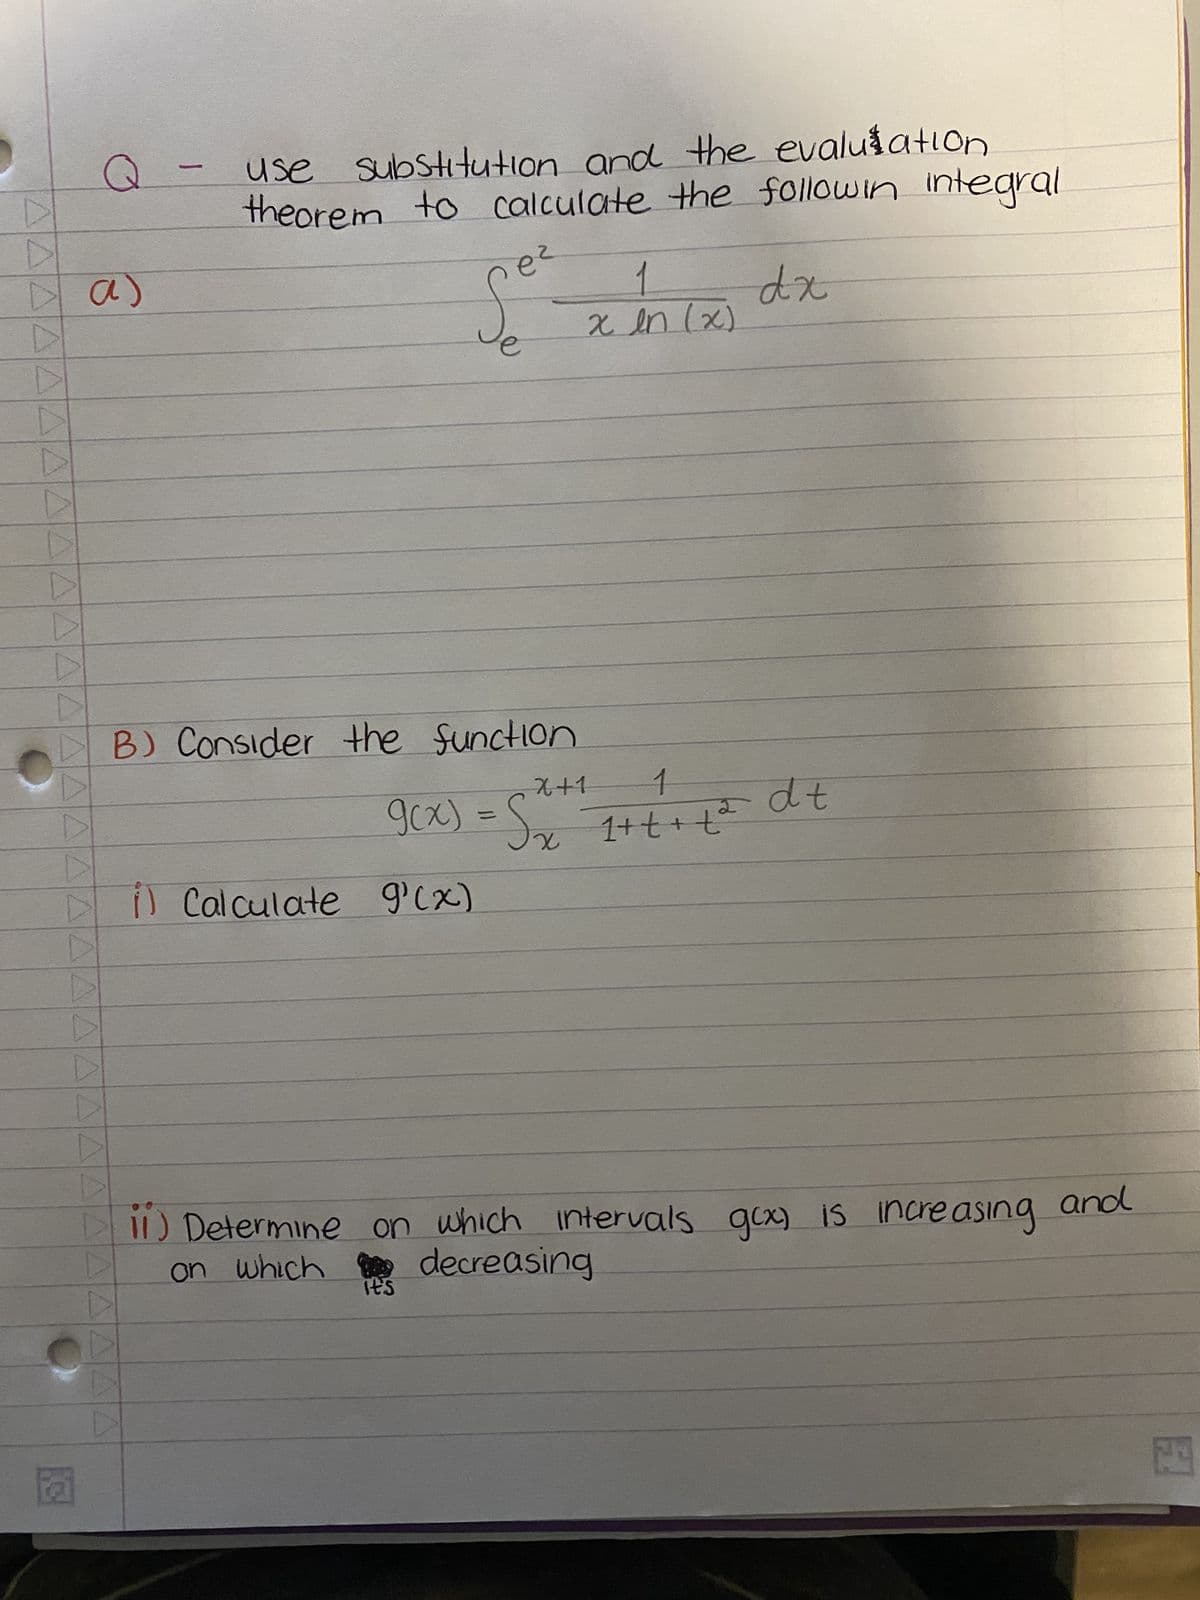 Q - use substitution and the evaluation
theorem to calculate the followin integral
a) ∫ₑ^e² 1 / x ln (x) dx
B) Consider the function
g(x) = ∫ₓ^x+1 1 / 1+t+t² dt
i) Calculate g'(x)
ii) Determine on which intervals g(x) is increasing and
on which it's decreasing